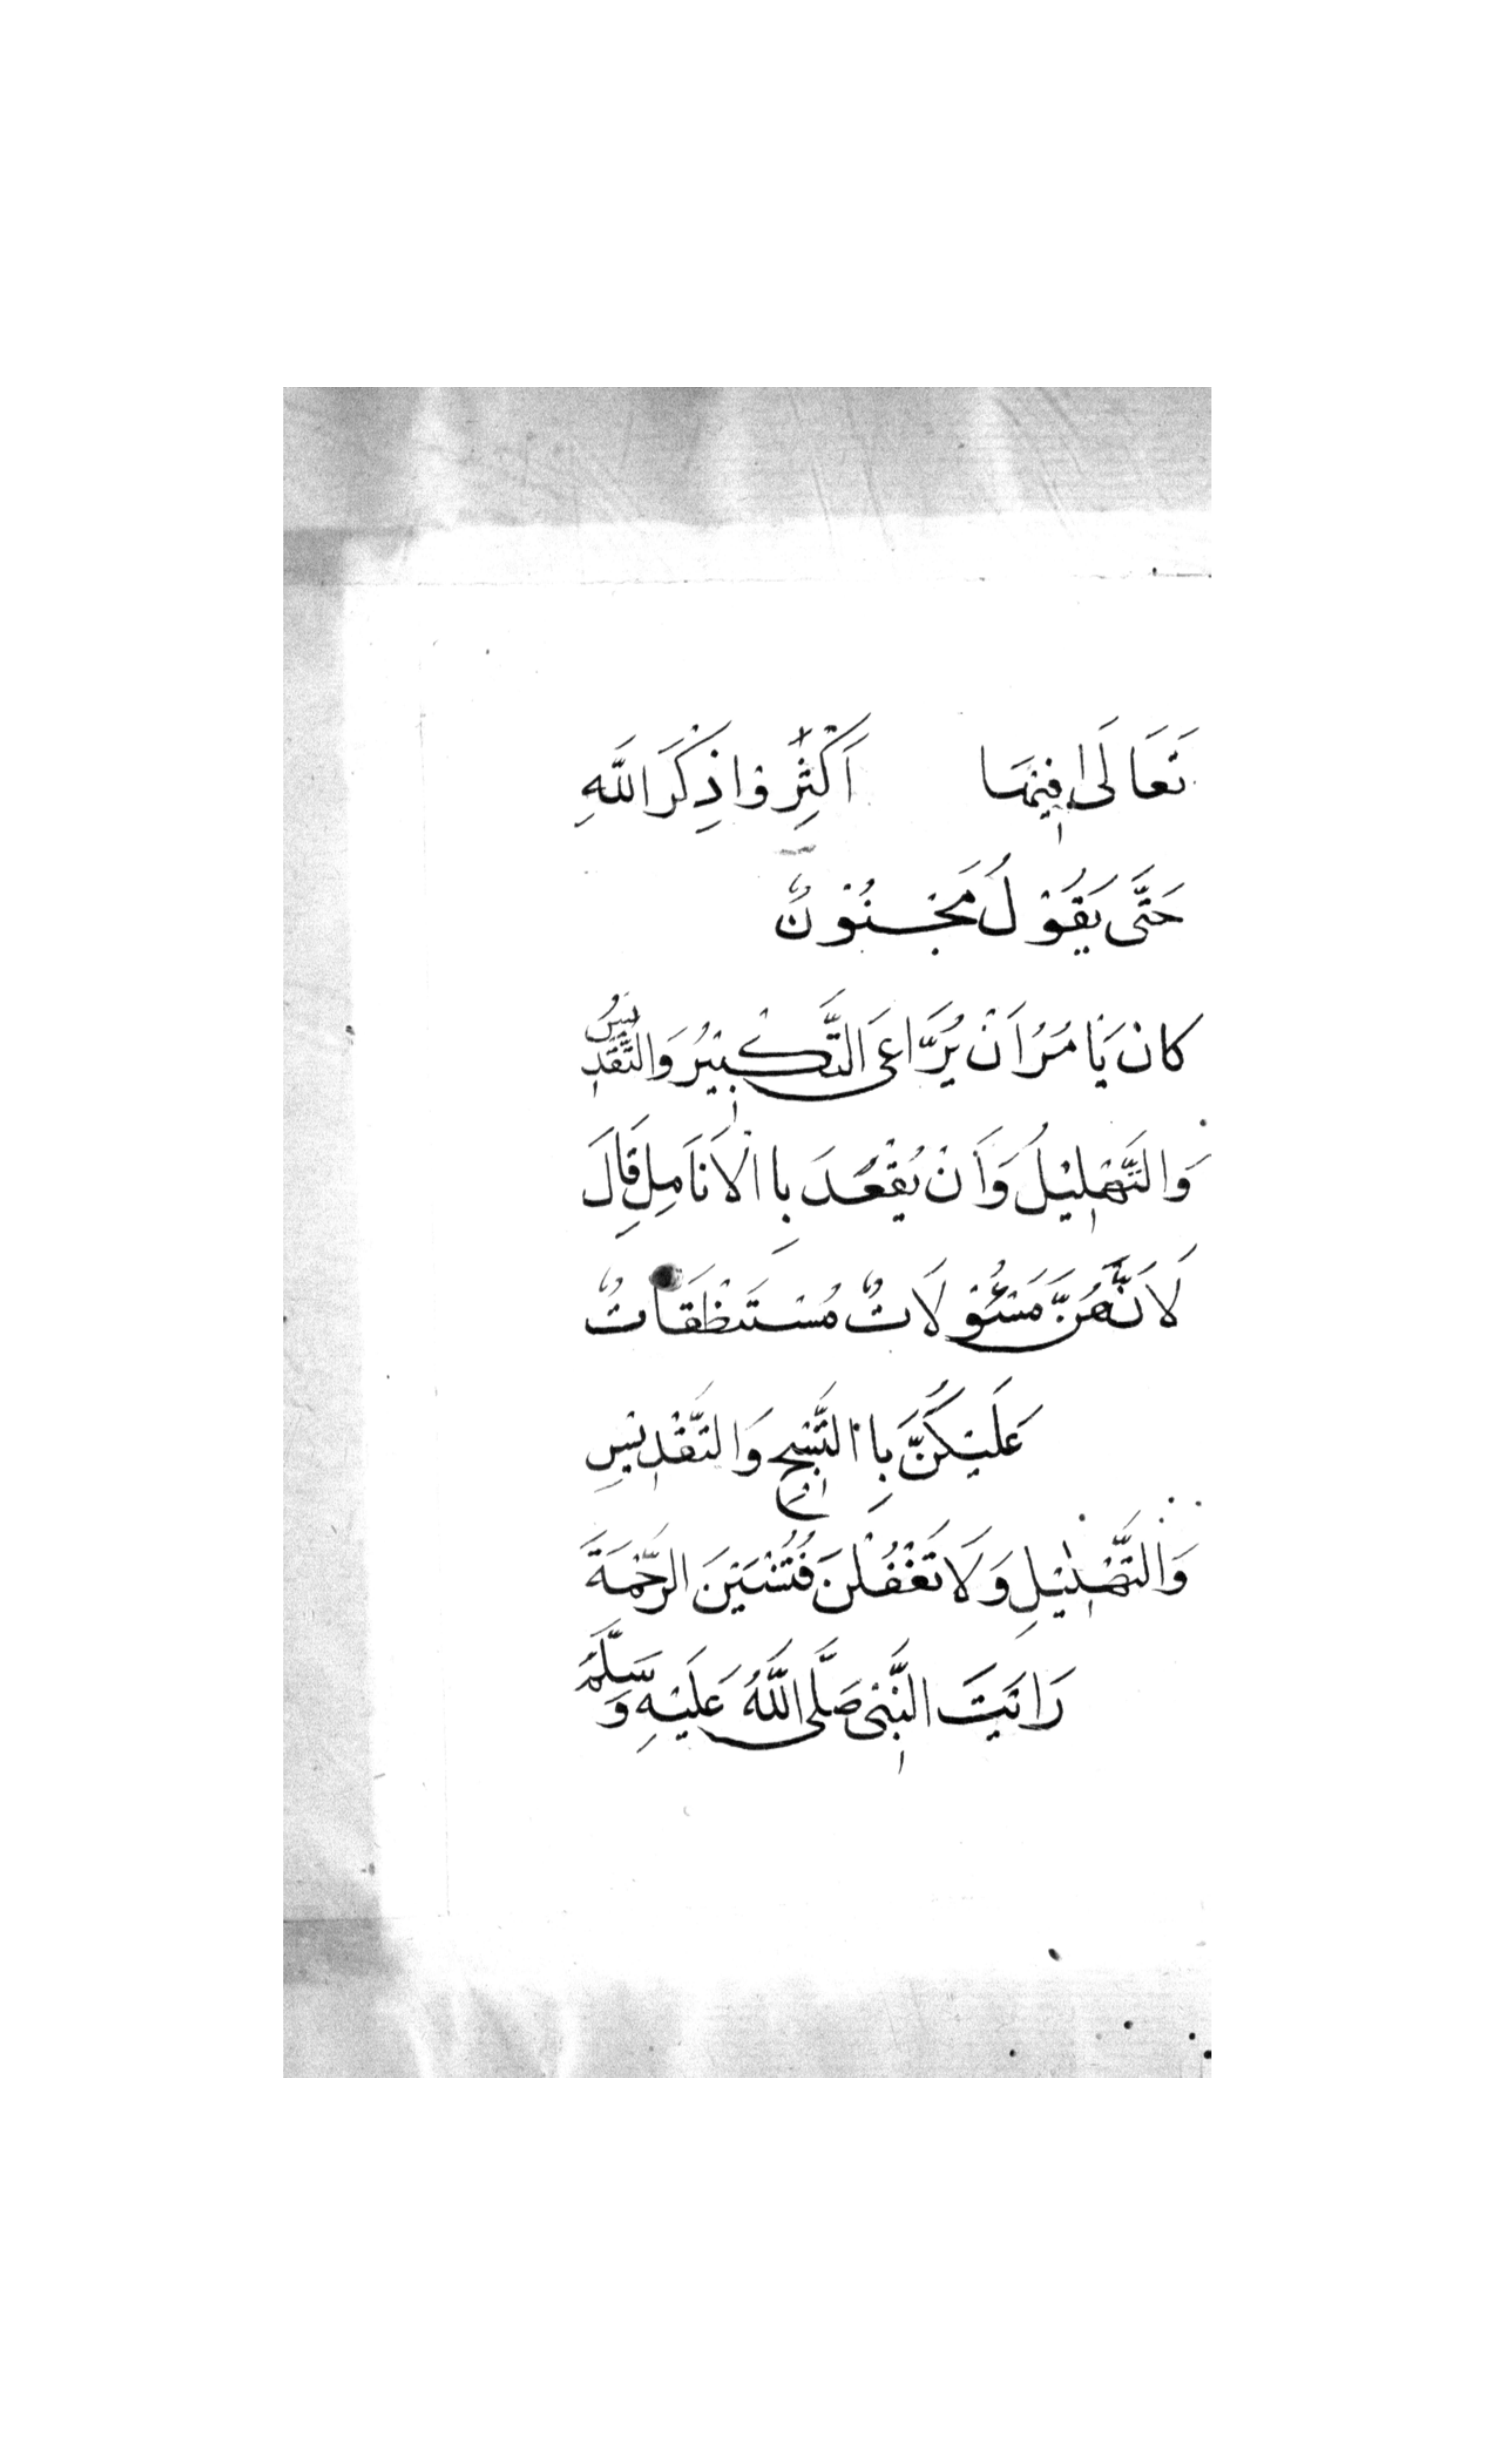 تَعَالَىٰ فِيْهَا اَكْثِرُوْا ذِكْرَ اللّٰهِ
حَتّٰى يَقُوْلَ مَجْنُوْنٌ
كَانَ يَاْمُرُ اَنْ يُرَّاعَى التَّكْبِيْرُ وَالتَّقْدِيْسُ
وَالتَّهْلِيْلُ وَاَنْ يُقْعَدَ بِاالْاَنَامِلِ قَالَ
لَانَّهُنَّ مَسْئُوْلَاتٌ مُسْتَنْظَقَاتٌ
عَلَيْكُنَّ بِاالتَّسْبِيْحِ وَالتَّقْدِيْسِ
وَالتَّهْلِيْلِ وَلَا تَغْفُلْنَ فَتُنْسَيْنَ الرَّحْمَةَ
رَاَيْتَ النَّبِىَّ صَلَّى اللّٰهُ عَلَيْهِ وَسَلَّمَ